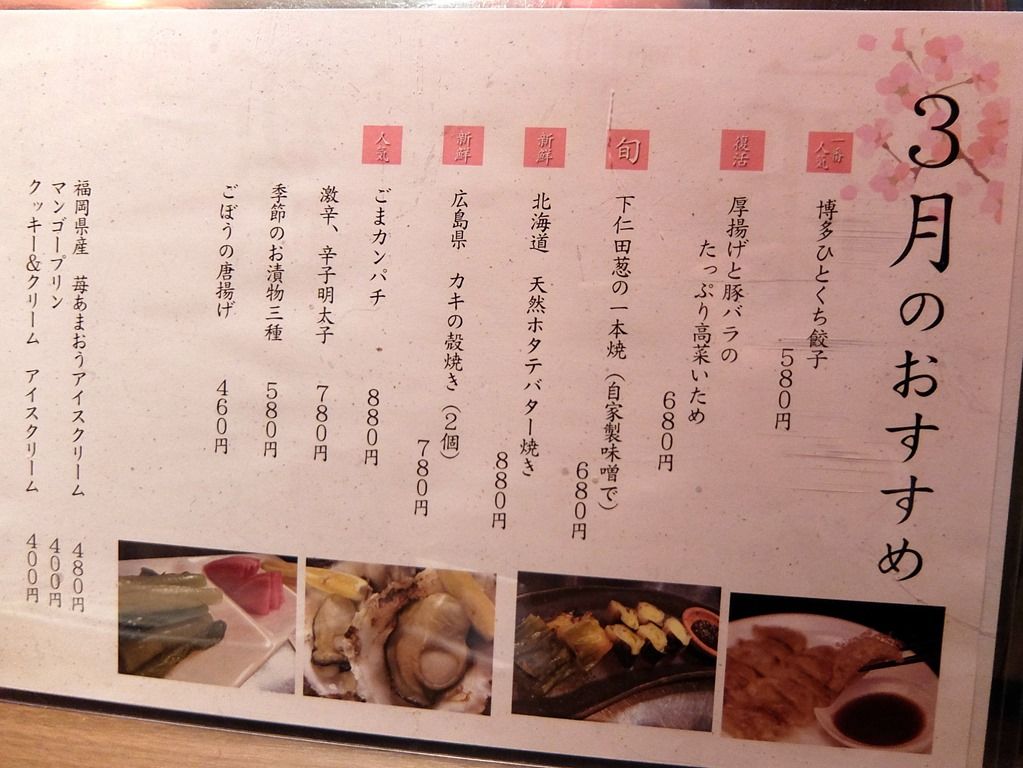 3月のおすすめ
一番人気
博多ひとくち餃子
580円
復活
厚揚げと豚バラの
たっぷり高菜いため
680円
旬
下仁田葱の一本焼(自家製味噌で)
680円
新鮮
北海道 天然ホタテバター焼き
880円
新鮮
広島県 カキの殻焼き(2個)
780円
人気
ごまカンパチ 880円
激辛、辛子明太子 780円
季節のお漬物三種 580円
ごぼうの唐揚げ 460円
福岡県産 苺あまおうアイスクリーム 480円
マンゴープリン 400円
クッキー&クリーム アイスクリーム 400円